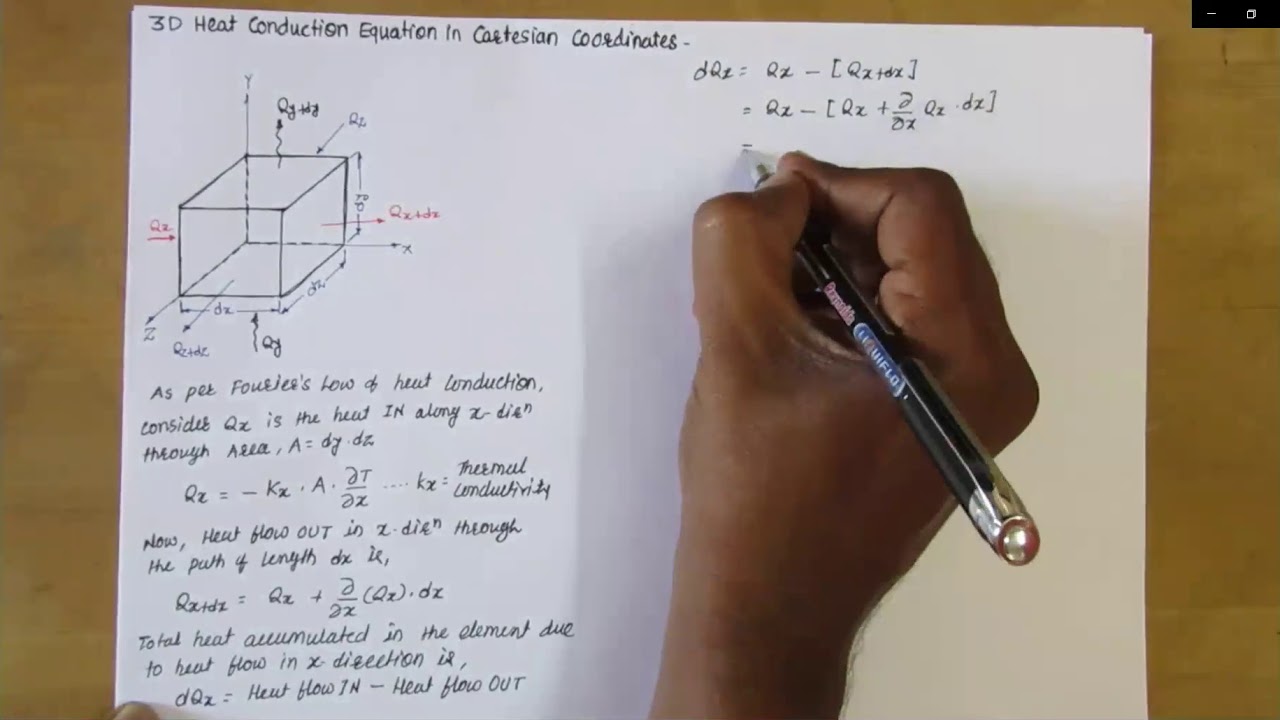 3D Heat Conduction Equation In Cartesian Coordinates -
Y
Qy+dy
Qz
dy
Qx
Qx+dx
X
dz
dx
Z
Qz+dz
Qy
As per Fourier's Law of heat Conduction,
consider Qx is the heat IN along x-dirⁿ
through Area, A = dy·dz
Qx = - Kx · A · ∂T/∂x .... kx = Thermal Conductivity
Now, Heat flow OUT in x-dirⁿ through
the path of length dx is,
Qx+dx = Qx + ∂/∂x (Qx)·dx
Total heat accumulated in the element due
to heat flow in x-direction is,
dQx = Heat flow IN - Heat flow OUT
dQx = Qx - [Qx+dx]
= Qx - [Qx + ∂/∂x Qx ·dx]
=
LIQUIFLO